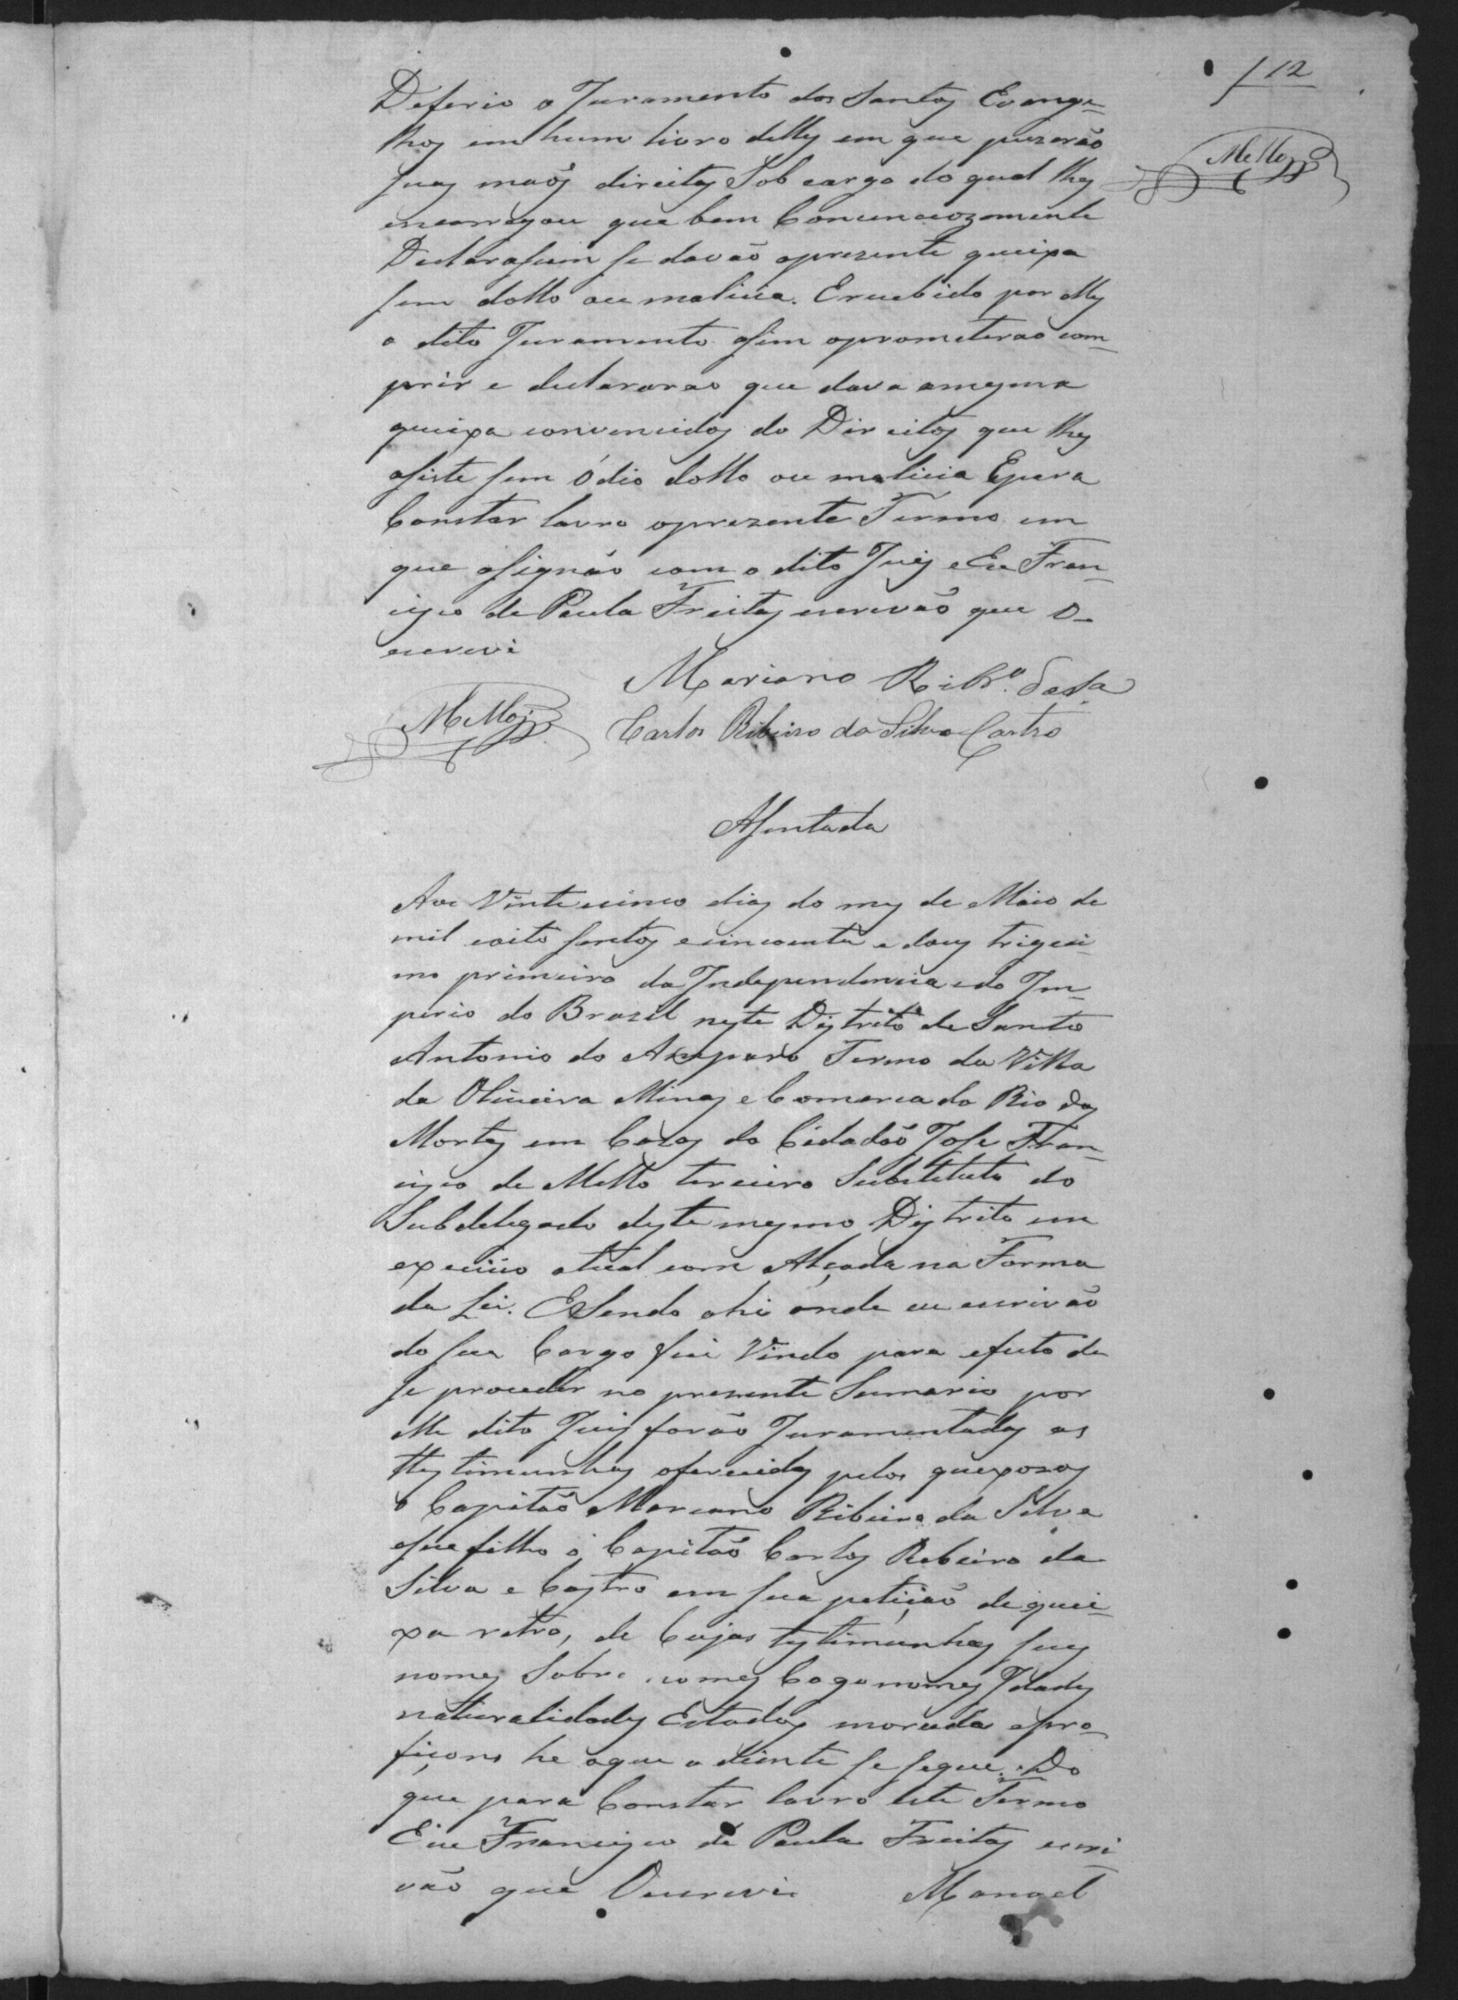 f 12
Mello
Deferio o Juramento dos Santos Evange-
lhos em hum livro delles em que puzerão
suas mãos direitas Sob cargo do qual lhes
encarregou que bem Conciencozamente
Declarassem se davão apresente queixa
sem dollo ou malicia. Erecebido por elles
o dito Juramento assim oprometerao com-
prir e declararao que dava amesma
queixa convencidos do Direitos que lhes
asiste sem ódio dollo ou malicia Epara
Constar lavro oprezente Termo em
que asignão com o dito Juis e Eu Fran-
cisco de Paula Freitas escrivão que o-
escrevi
Mariano Ribr.º da Sa
Mello
Carlos Ribeiro da Silva Castro
Asentada
Aos Vinte cinco dias do mes de Maio de
mil oito sentos e cincoenta e dous trigesi-
mo primeiro da Independencia e do Im-
perio do Brazil neste Distrito de Santo
Antonio do Amparo Termo da Villa
da Oliveira Minas e Comarca do Rio das
Mortes em Cazas do Cidadão Jose Fran-
cisco de Mello terceiro Substituto do
Subdelegado deste mesmo Distrito em
exercicio atual com Alçada na Forma
da Lei. ESendo ahi onde eu escrivão
do seu Cargo fui Vindo para efeito de
se proceder no presente Sumario por
elle dito Juis forão Juramentadas as
testimunhas oferecidas pelos queixosos
o Capitão Mariano Ribeiro da Silva
eseu filho o Capitão Carlos Ribeiro da
Silva e Castro em sua petição de quei-
xa retro, de Cujas testimunhas seus
nomes Sobre nomes Cogonomes Idades
naturalidades Estados morada epro-
fiçons he oque a diente se segue. Do
que para Constar lavro este Termo
Eeu Francisco de Paula Freitas escri
vão que Oescrevi Manoel